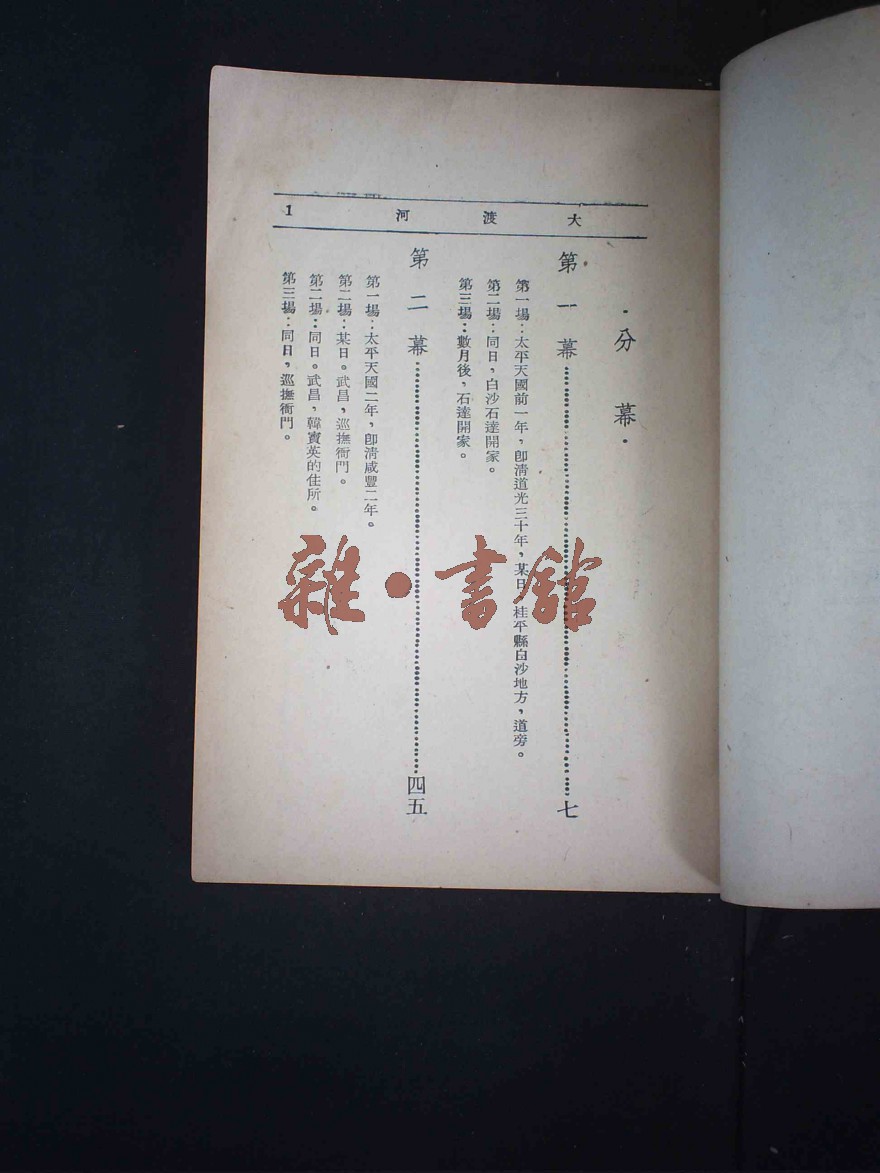 大渡河
1
·分幕·
第一幕……七
第一場：太平天國前一年，卽清道光三十年，某日，桂平縣白沙地方，道旁。
第二場：同日，白沙石達開家。
第三場：數月後，石達開家。
第二幕……四五
第一場：太平天國二年，卽清咸豐二年。
第二場：某日。武昌，巡撫衙門。
第二場：同日。武昌，韓寶英的住所。
第三場：同日，巡撫衙門。
雜·書館